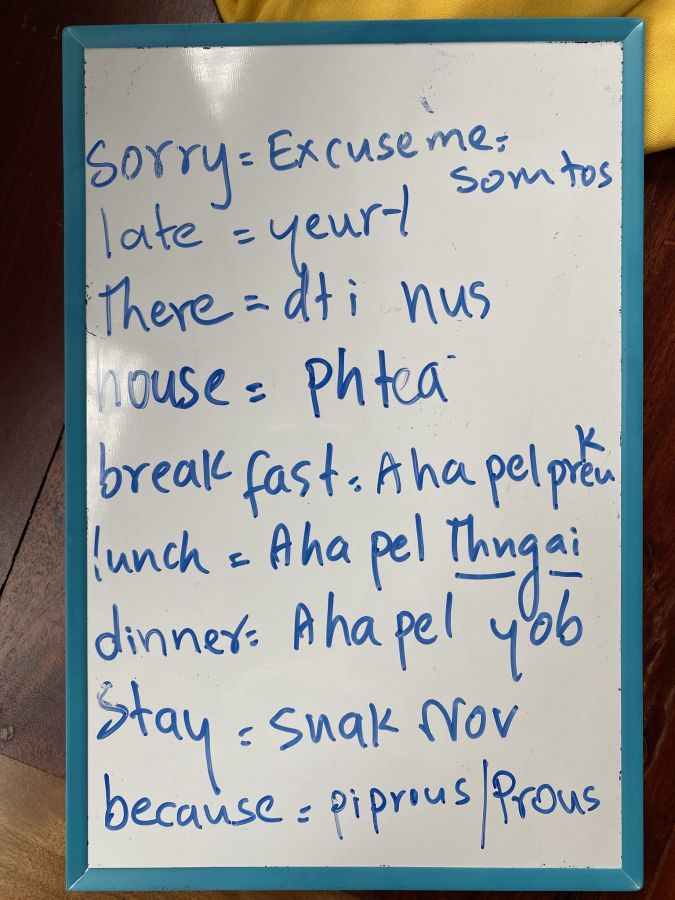 Sorry = Excuse me = som tos
late = yeur-l
There = dti nus
house = Phtea
breakfast = Aha pel preuk
lunch = Aha pel Thngai
dinner = Aha pel yob
Stay = Snak Nov
because = piprous/Prous